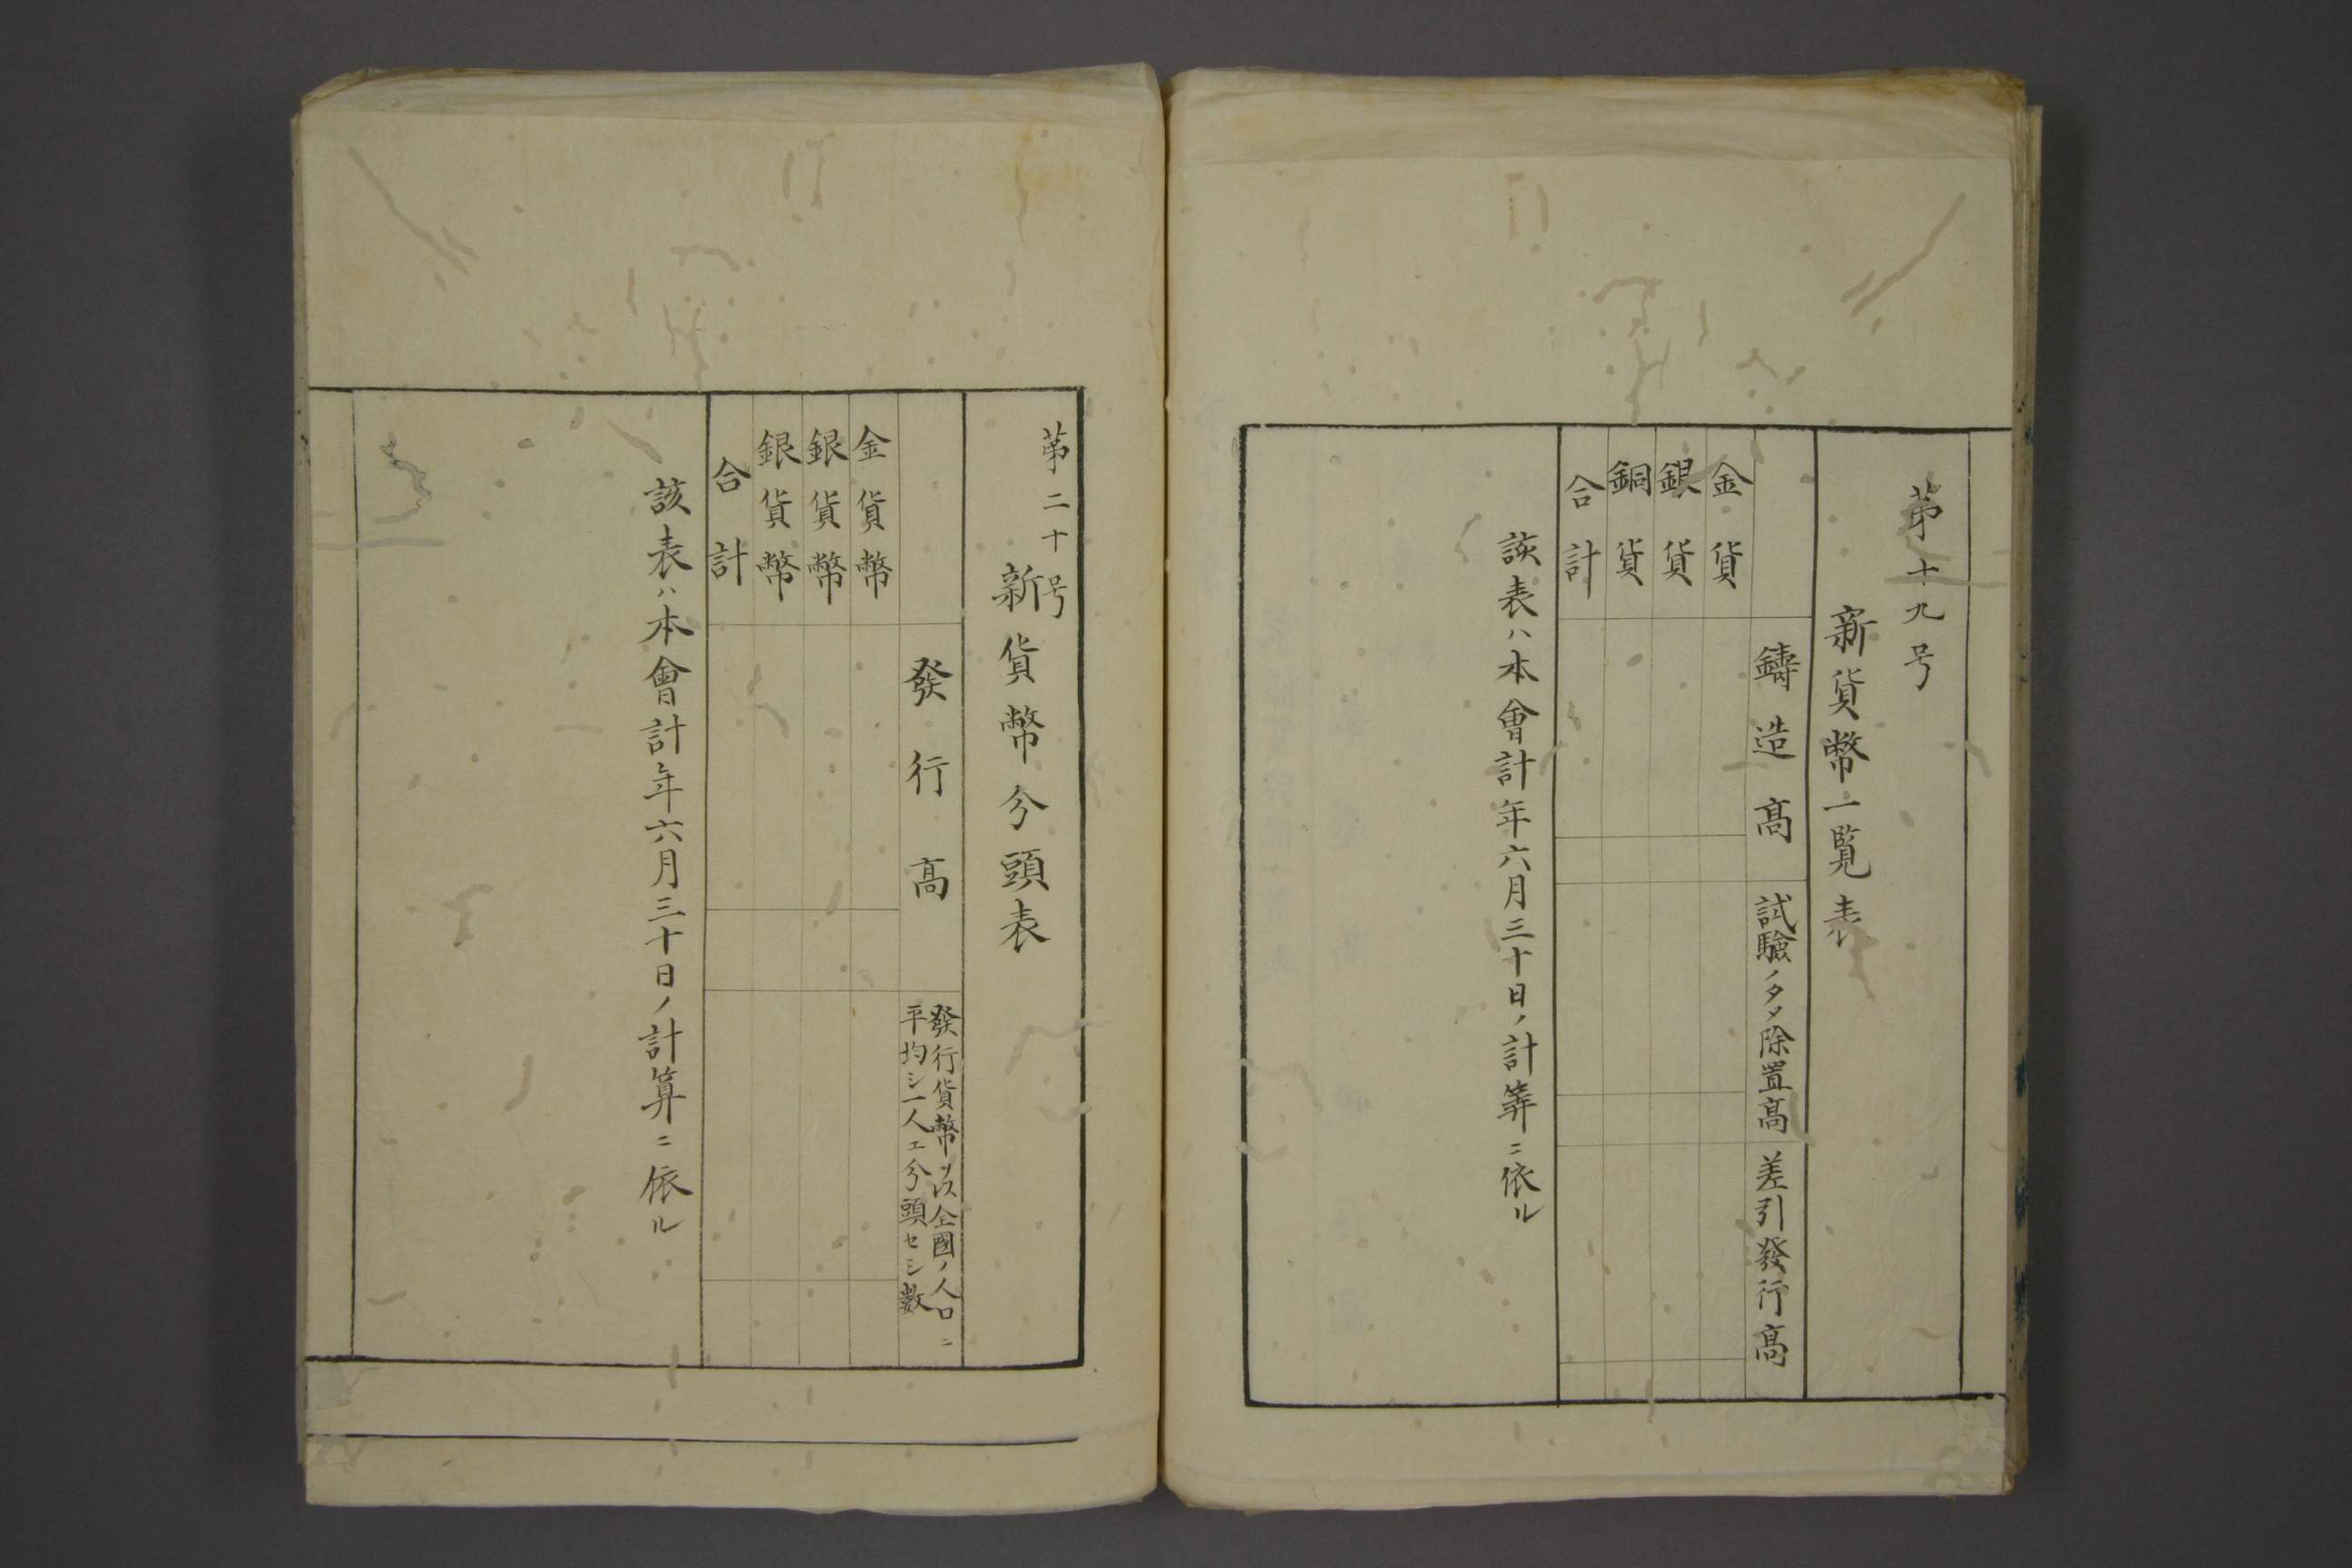 第十九号
新貨幣一覧表
鑄造髙
試驗ノタメ除置髙
差引發行髙
金貨
銀貨
銅貨
合計
該表ハ本會計年六月三十日ノ計筭ニ依ル
第二十号
新貨幣分頭表
發行髙
發行貨幣ヲ以全國ノ人口ニ
平均シ一人エ分頭セシ數
金貨幣
銀貨幣
銀貨幣
合計
該表ハ本會計年六月三十日ノ計算ニ依ル